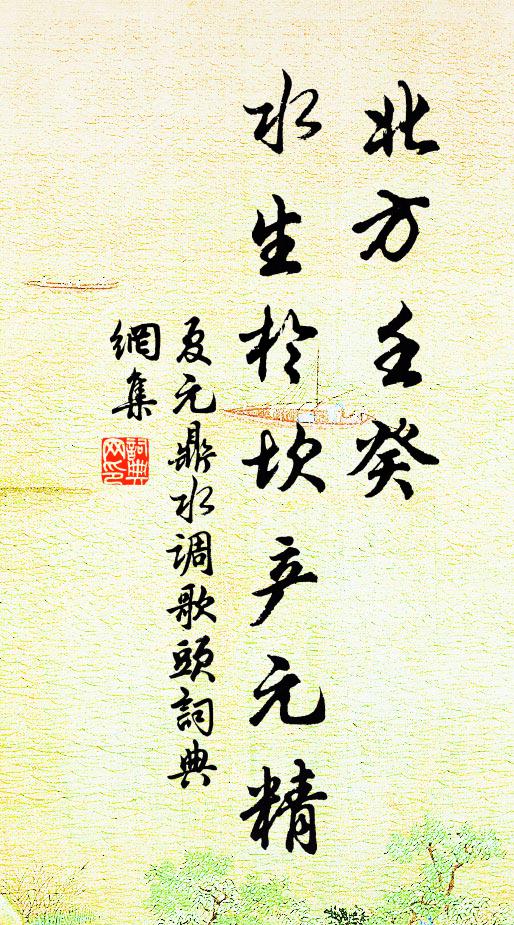 北方壬癸
水生於坎产元精
夏元鼎水调歌頭詞典
網集
詞典
网印